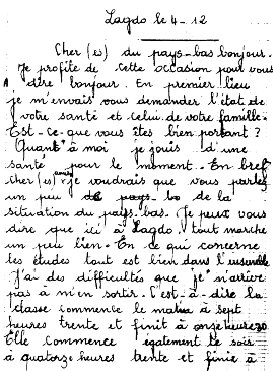 Lagdo le 4-12
Cher(es) du pays-bas bonjour.
Je profite de cette occasion pour vous
dire bonjour. En premier lieu
je m'envais vous demander l'état de
votre santé et celui de votre famille.
Est-ce-que vous êtes bien portant ?
Quant à moi je jouis d'une
santé pour le moment. En bref
cher(es) amies je voudrais que vous parliez
un peu de la
situation du pays-bas. Je peux vous
dire que ici à Lagdo, tout marche
un peu bien. En ce qui concerne
les études tout est bien dans l'ensemble
J'ai des difficultés que je n'arrive
pas à m'en sortir. C'est-à-dire la
classe commence le matin à sept
heures trente et finit à onze heures 30
Elle commence également le soir
à quatorze heures trente et finie à